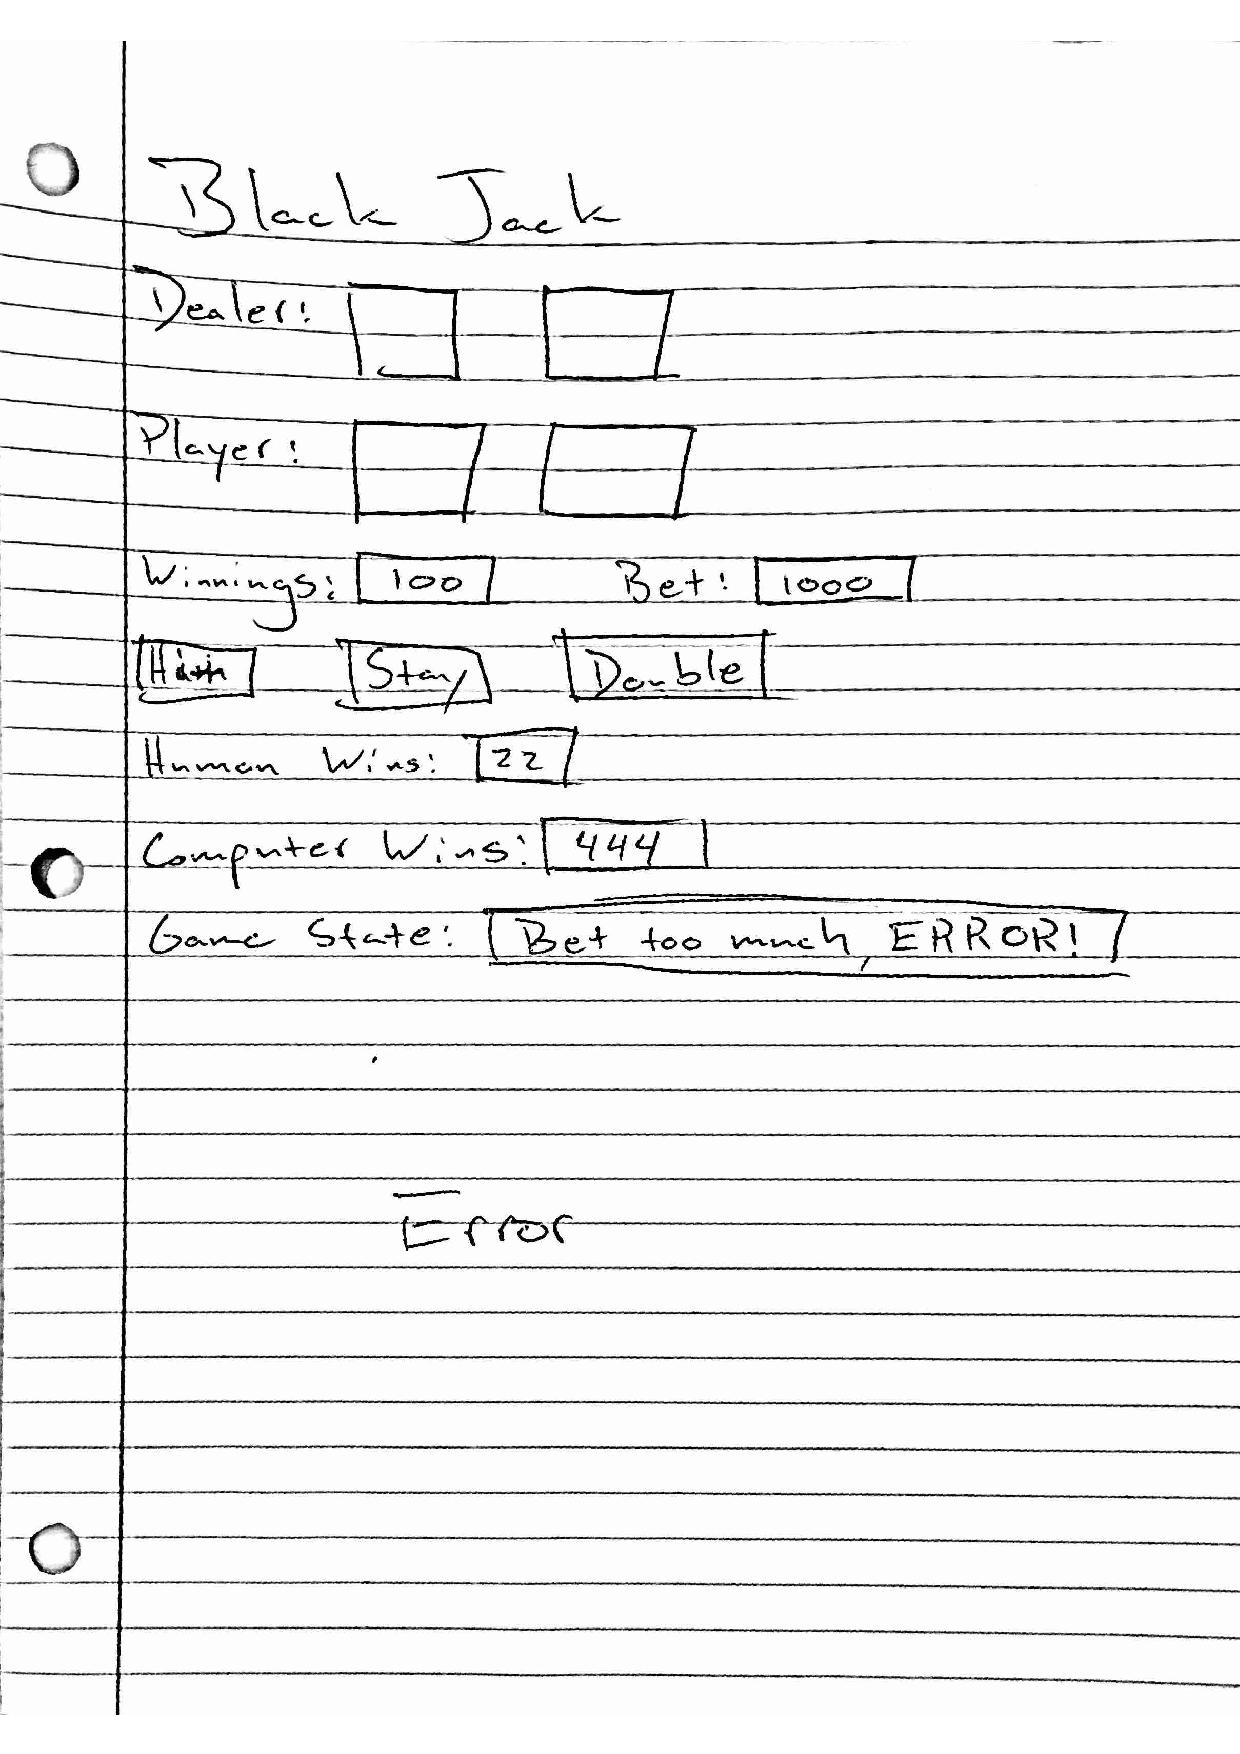 Black Jack
Dealer:
Player:
Winnings: 100 Bet: 1000
Stay Double
Human Wins: 22
Computer Wins: 444
Game State: Bet too much, ERROR!
Error